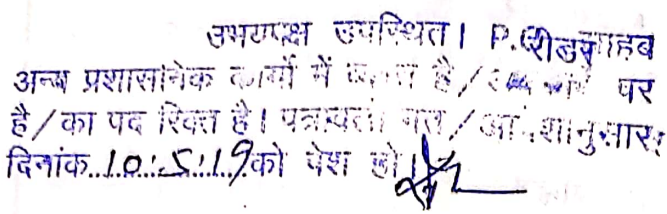 उभयपक्ष उपस्थित। P.O. रीडर साहब
अन्य प्रशासनिक कार्यो में व्यस्त है/ पर
है/का पद रिक्त है। पत्रावली गत/आदेशानुसार
दिनांक 10:5:19 को पेश हो।